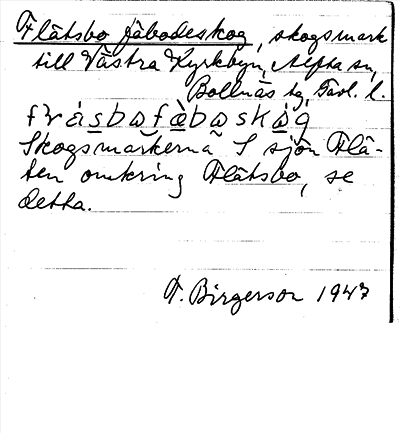 Flåtsbo fäbodeskog, skogsmark
till Västra Kyrkbyn, Alfta sn,
Bollnäs tg, Gävl. l.
fråsbωfæ̀bωskὼg
Skogsmarkerna S sjön Flå-
ten omkring Flåtsbo, se
detta.
F. Birgerson 1947